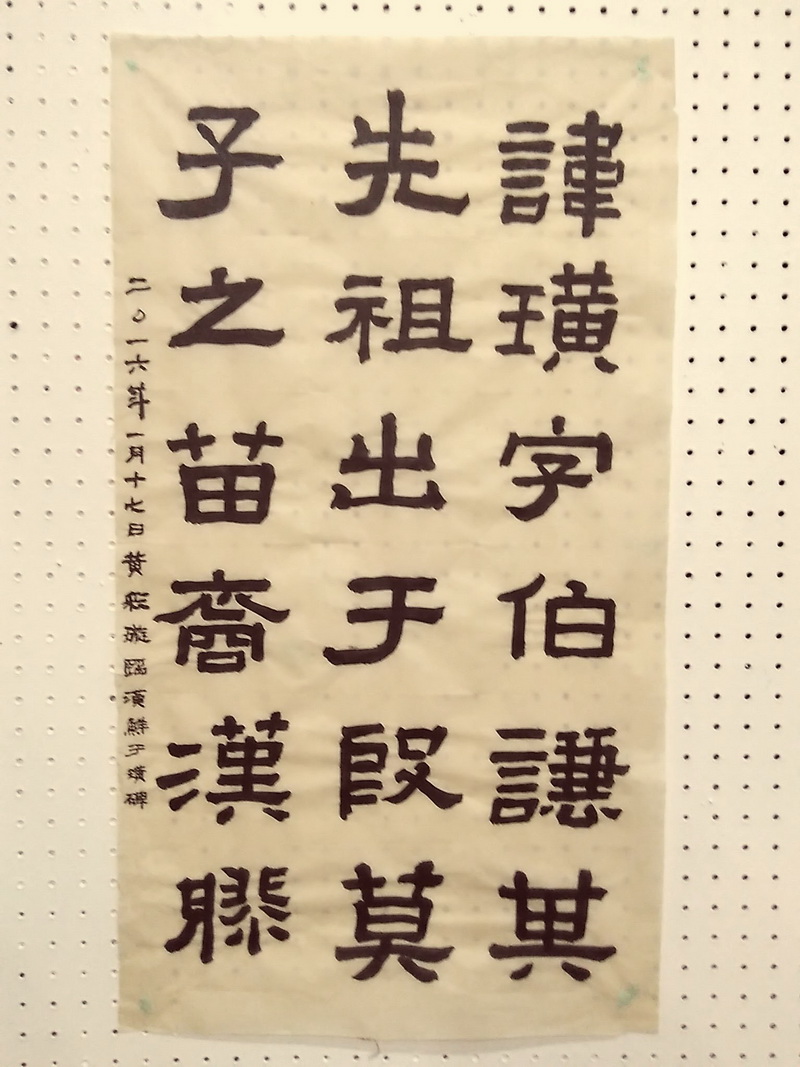 諱璜字伯謙其
先祖出于殷箕
子之苗裔漢膠
二〇一六年一月十七日黄
臨漢鮮于璜碑